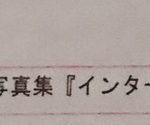 写真集『インター